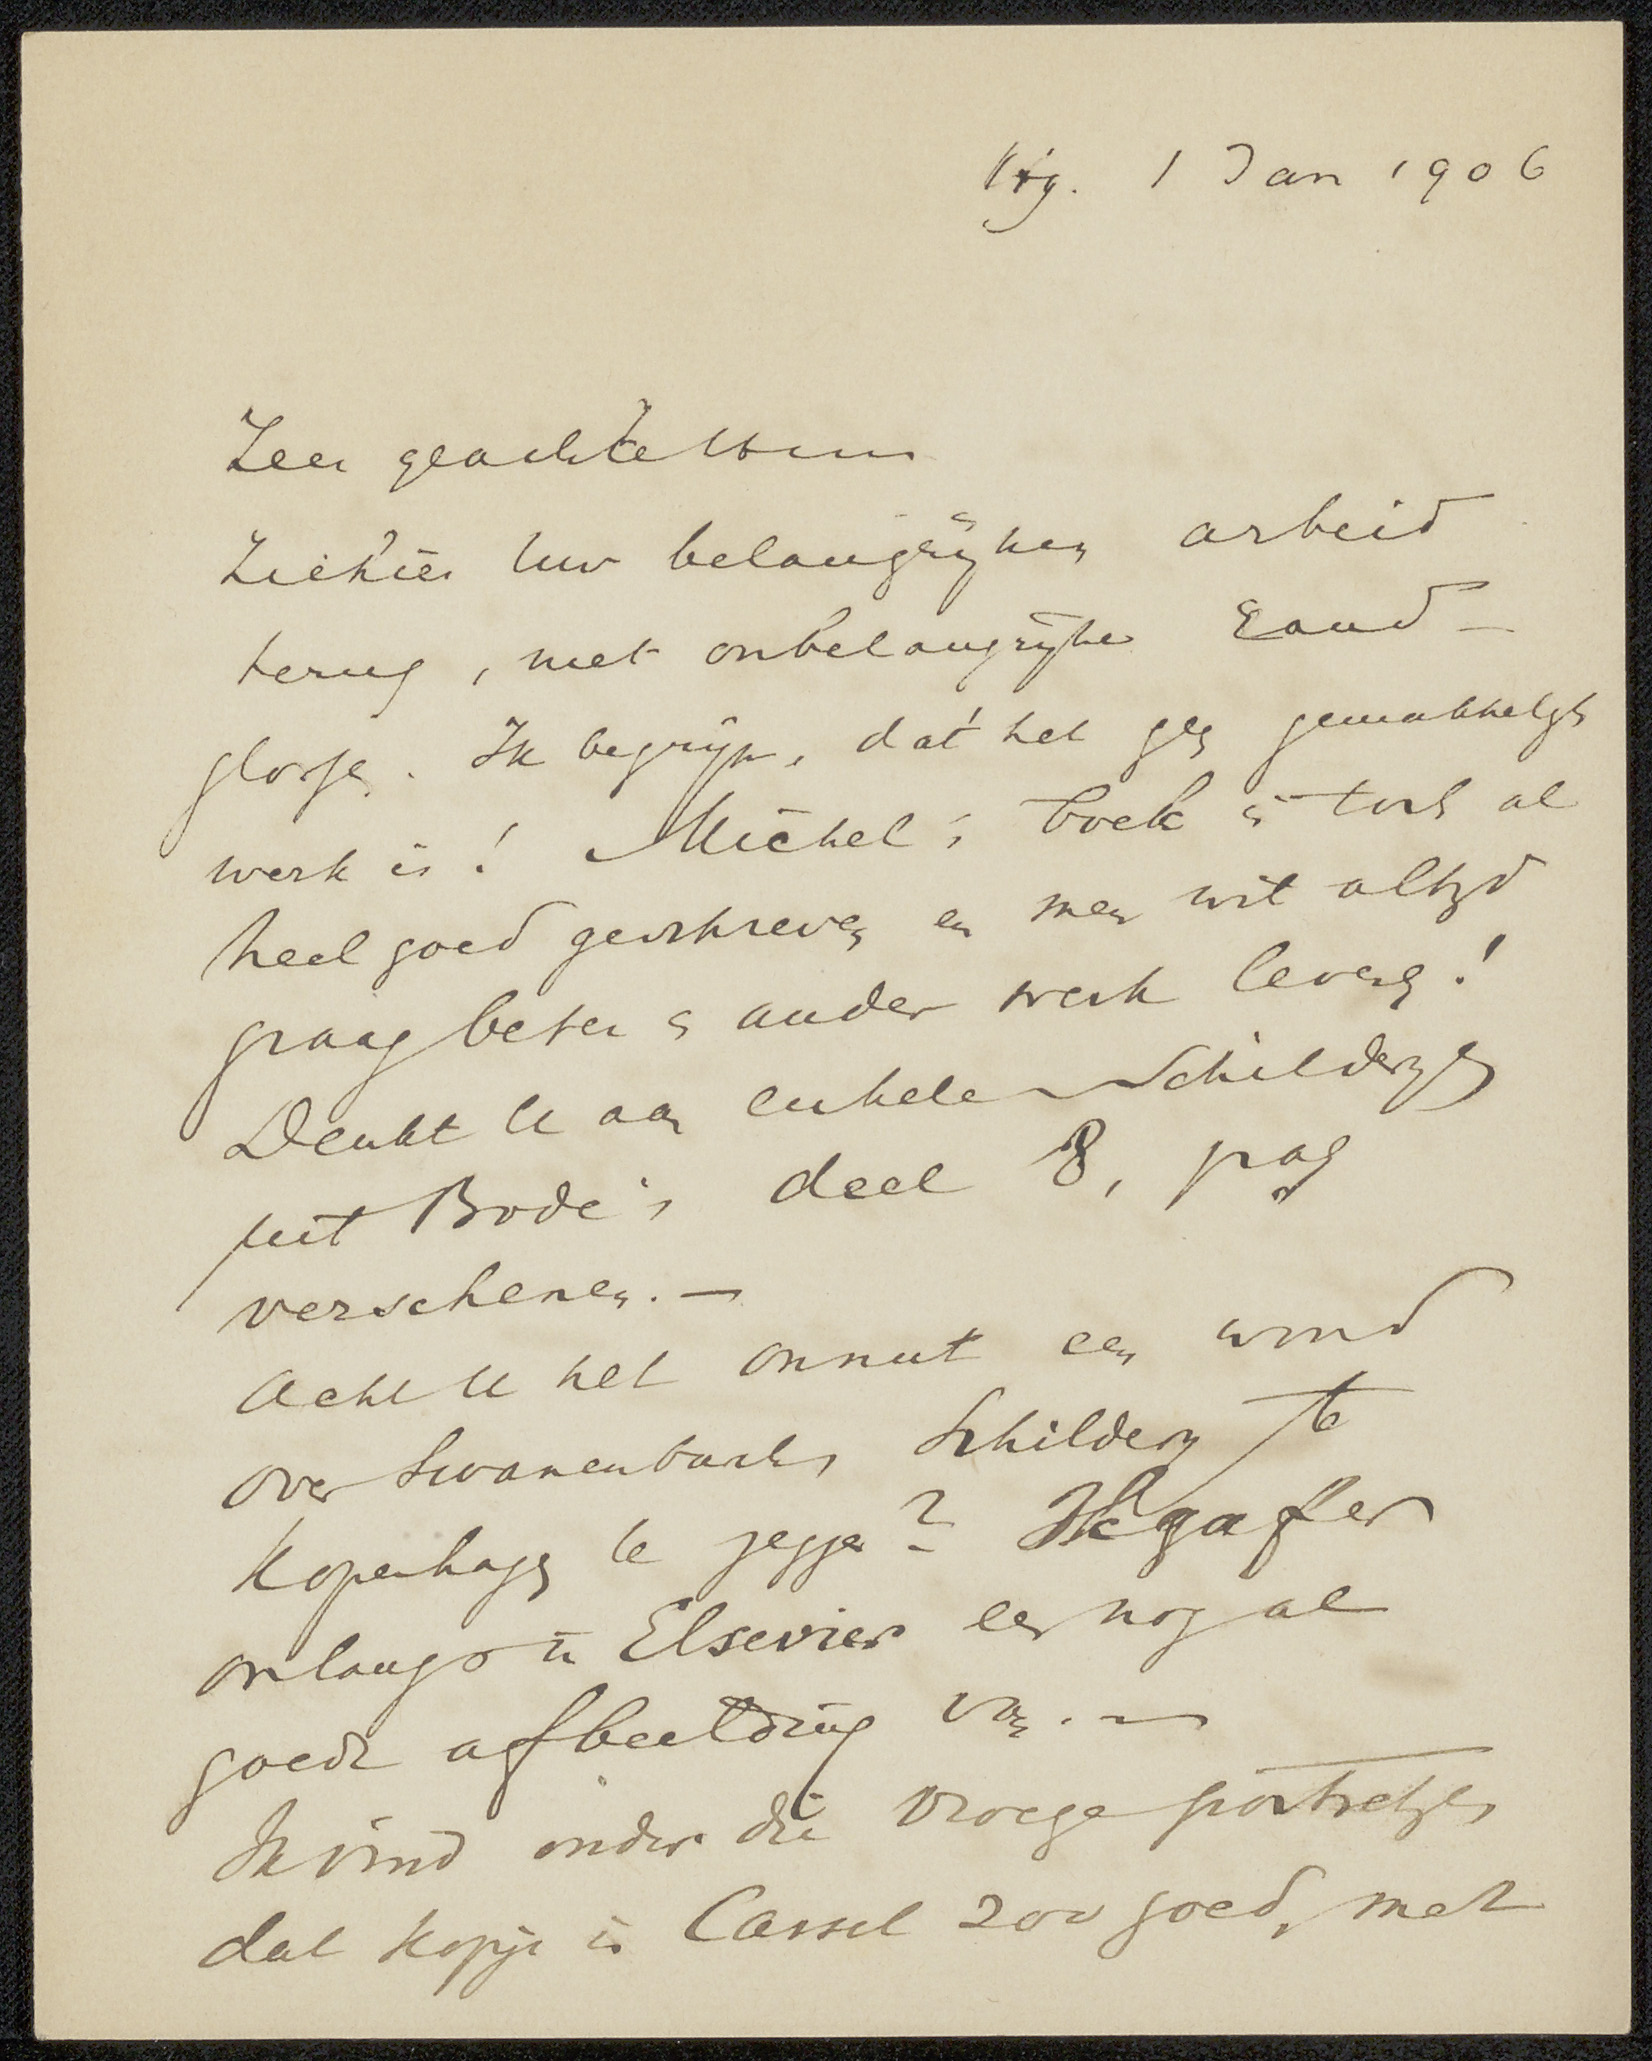 1 Jan 1906
Zeer geachte
Ziehier Uw belangrijken arbeid
terug, met onbelangrijke rand-
glossen. Ik begrijp, dat het geen gemakkelijk
werk is! Michel's boek is toch al
heel goed geschreven en men wil altijd
graag beter en ander werk leveren!
Denkt U aan enkele schilderijen
uit Bode's deel 8, pas
verschenen. —
Acht U het onnut een woord
over Swanenburchs schilderij te
Kopenhagen te zeggen? Ik gaf er
onlangs in Elsevier een nog al
goede afbeelding van. —
Ik vind onder die vroege portretjes
dat kopje in Cassel zoo goed, met